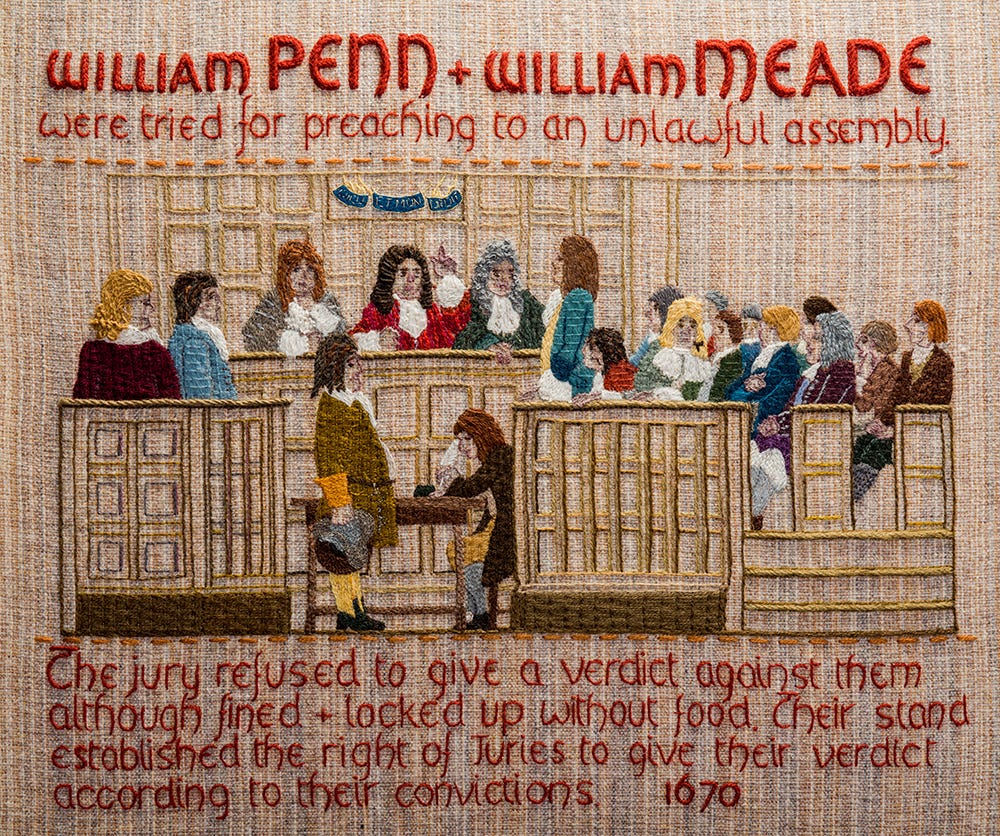 William PENN + William MEADE
were tried for preaching to an unlawful assembly.
ET MON
The jury refused to give a verdict against them
although fined + locked up without food. Their stand
established the right of Juries to give their verdict
according to their convictions. 1670